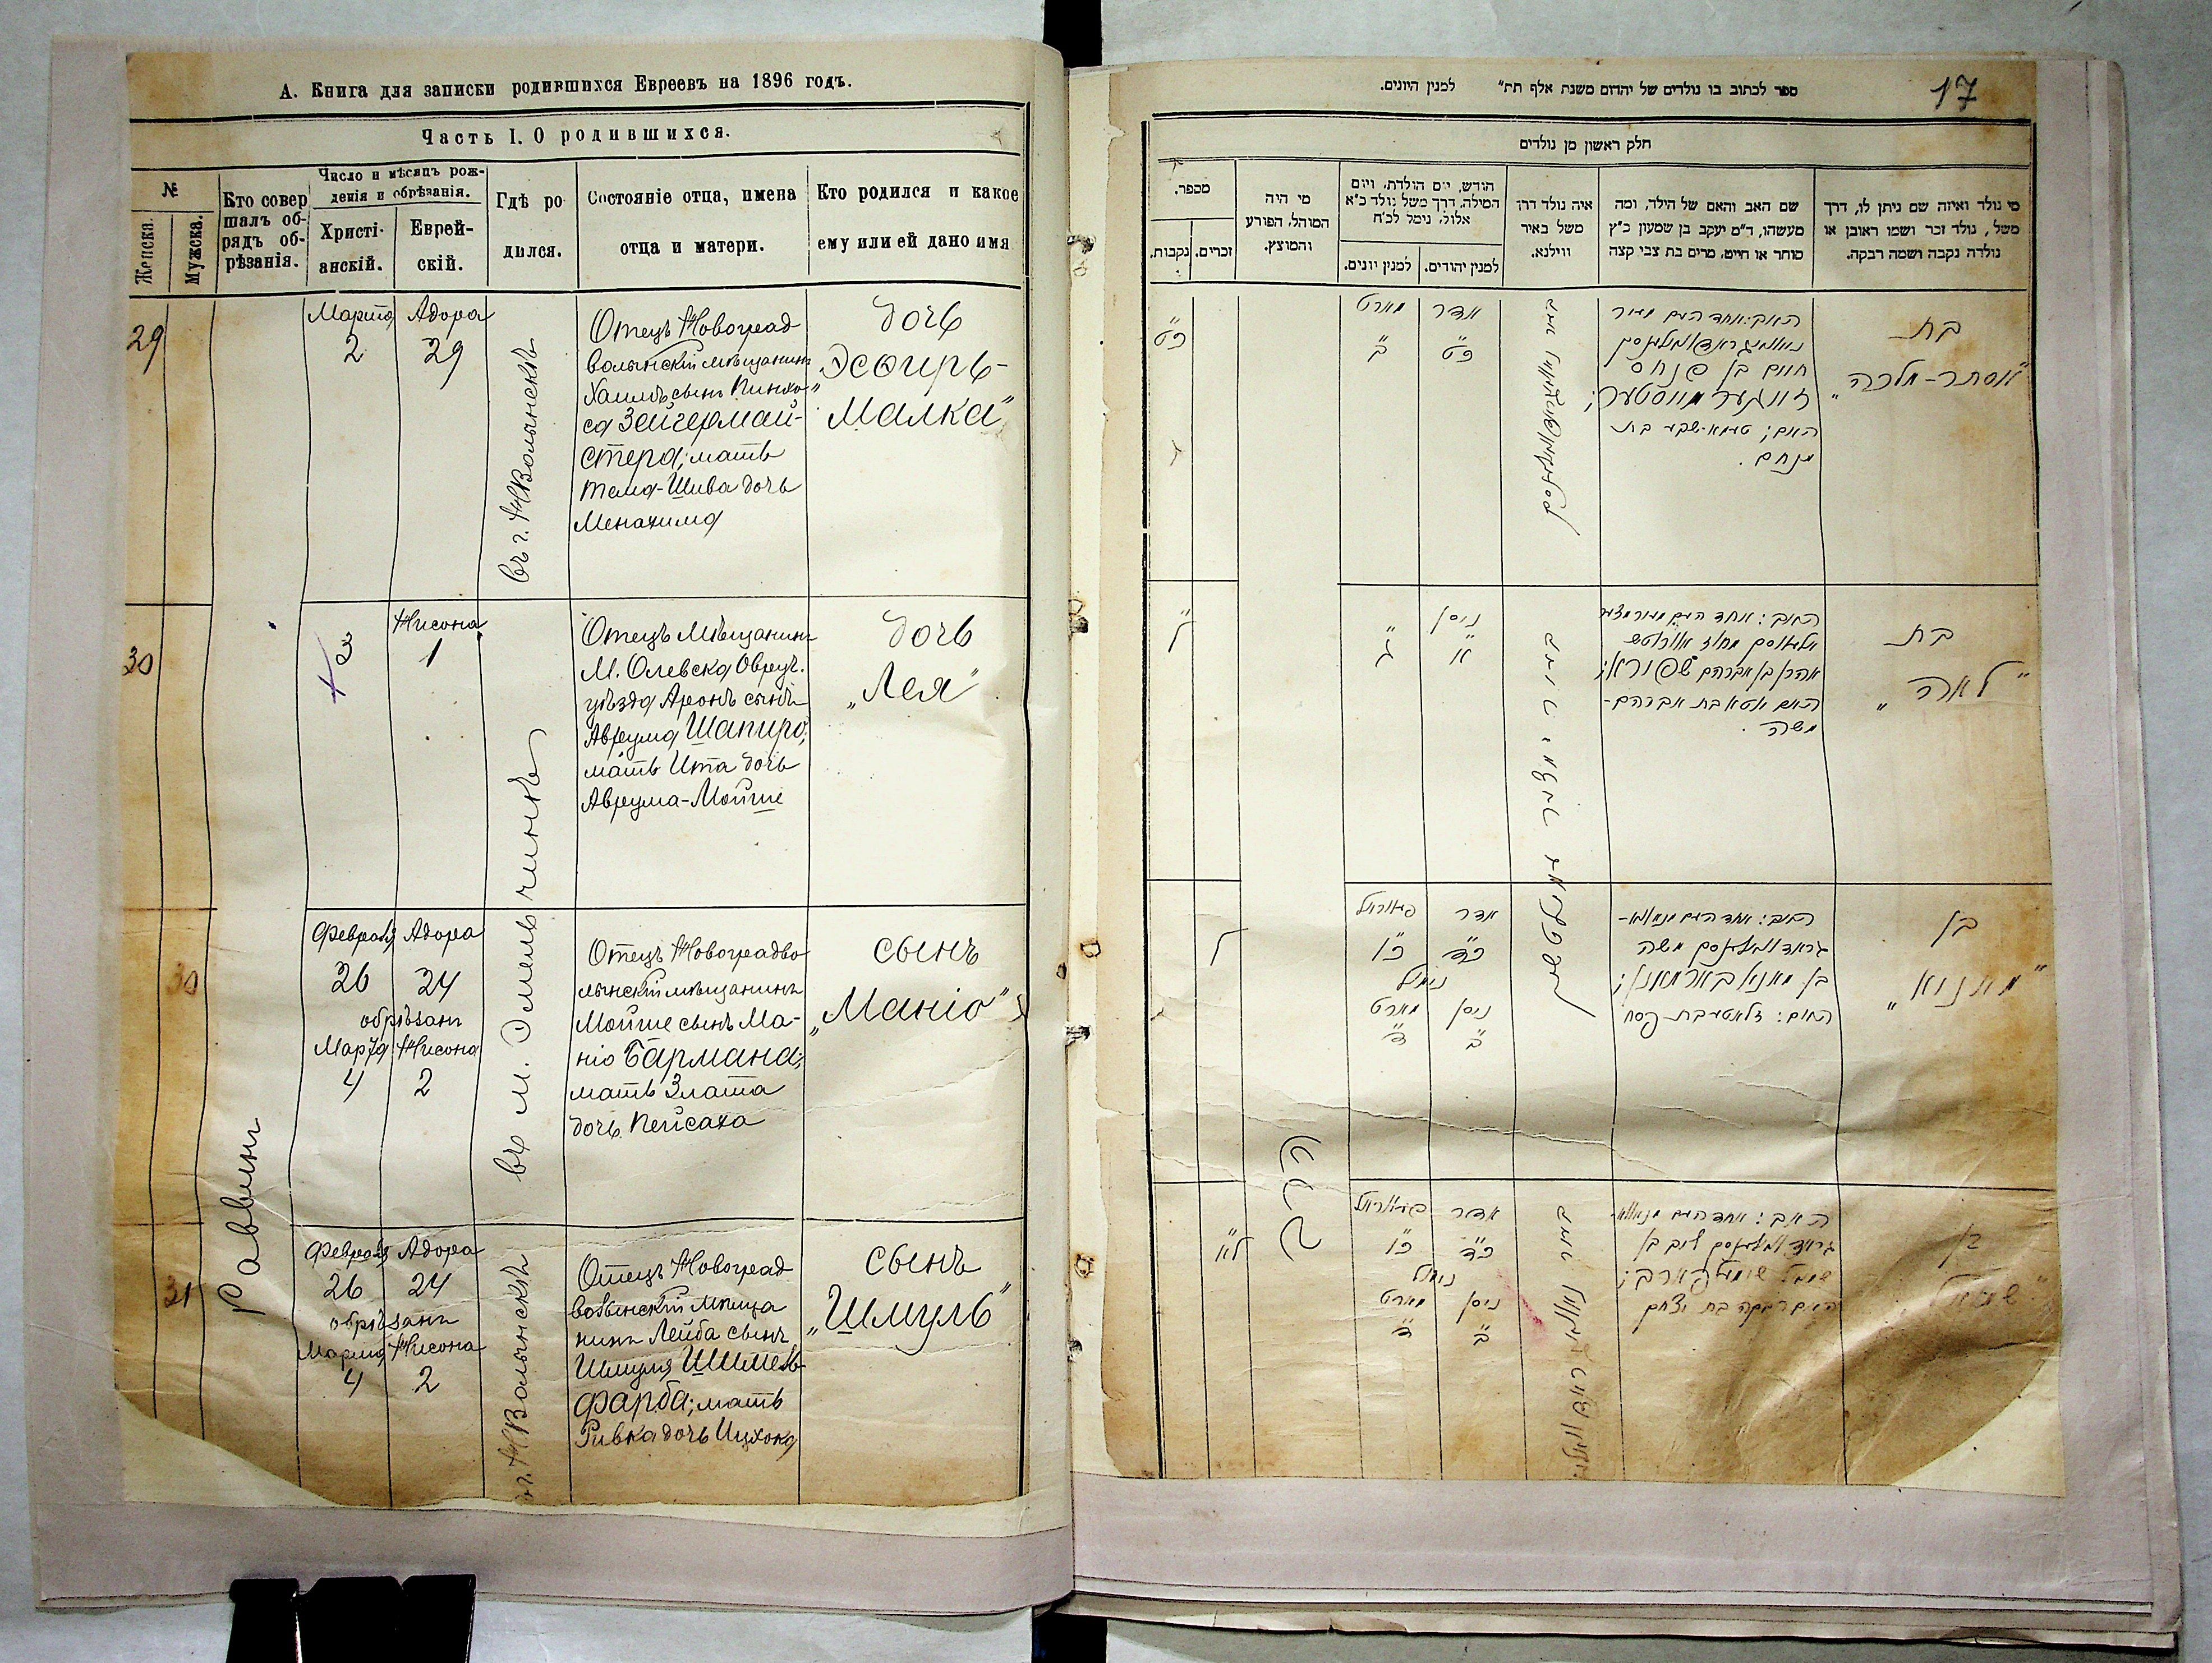 А. Книга для записки родившихся Евреевъ на 1896 годъ.
Часть I. О родившихся.
№
Женска.
Мужска.
Кто совер
шалъ об-
рядъ об-
рѣзанія.
Число и мѣсяцъ рож-
денія и обрѣзанія.
Христі-
анскій.
Еврей-
скій.
Гдѣ ро
дился.
Состояніе отца, имена
отца и матери.
Кто родился и какое
ему или ей дано имя
29
Марта
2
Адора
29
въ г. НВолынскѣ
Отецъ Новоград
волынскій мѣщанинъ
Хаимъ сынъ Пинхо-
са Зейгермай-
стера; мать
Тема-Шива дочь
Менахима
дочь
„Эсѳирь-
Малка"
30
3
Нисона
1
въ м. Эмельчинкѣ
Отецъ Мѣщанинъ
М. Олевска Овруч.
уѣзда Аронъ сынъ
Аврума Шапиро;
мать Ита дочь
Аврума-Мойше
дочь
„Лея"
30
Февраля
26
Адора
24
обрѣзанъ
Марта
4
Нисона
2
Отецъ Новоградво
лынскій мѣщанинъ
Мойше сынъ Ма-
ніо Бармана;
мать Злата
дочь Пейсаха
сынъ
„Маніо"
Раввинъ
31
Февраля
26
Адора
24
обрѣзанъ
Марта
4
Нисона
2
г. НВолынскѣ
Отецъ Новоград
волынскій мѣща
нинъ Лейба сынъ
Шмуля Шимель-
фарба; мать
Ривка дочь Ицхока
сынъ
„Шмуль"
17
ספר לכתוב בו נולדים של יהדום משנת אלף תת״ למנין היונים.
חלק ראשון מן נולדים
מי נולד ואיזה שם ניתן לו, דרך
משל, נולד זכר ושמו ראובן או
נולדה נקבה ושמה רבקה.
שם האב והאם של הילד, ומה
מעשהו, ד״מ יעקב בן שמעון כ״ץ
סוחר או חייט, מרים בת צבי קצה
איה נולד דרך
משל באיר
ווילנא.
הודש, יום הולדת, ויום
המילה, דרך משל נולד כ״א
אלול, נימל לכ״ח
למנין יהודים.
למנין יונים.
מי היה
המוהל, הפורע
והמוצץ.
מספר.
זכרים.
נקבות.
בת
"אסתר-מלכה"
חיים בן פנחס
מנחם.
אדר
כ״ט
מארט
ב״
כ״ט
בת
"לאה"
אהרן בן אברהם שפירא;
האם איטא בת אברהם-
משה.
ניסן
א״
ג״
ל״
בן
"מאניא"
אדר
כ״ד
כ״ו
נימול
ניסן
ב״
מארט
ד״
ל״
הרב
בן
אדר
כ״ד
כ״ו
נימול
ניסן
ב״
מארט
ד״
ל״א
האם רבקה בת יצחק